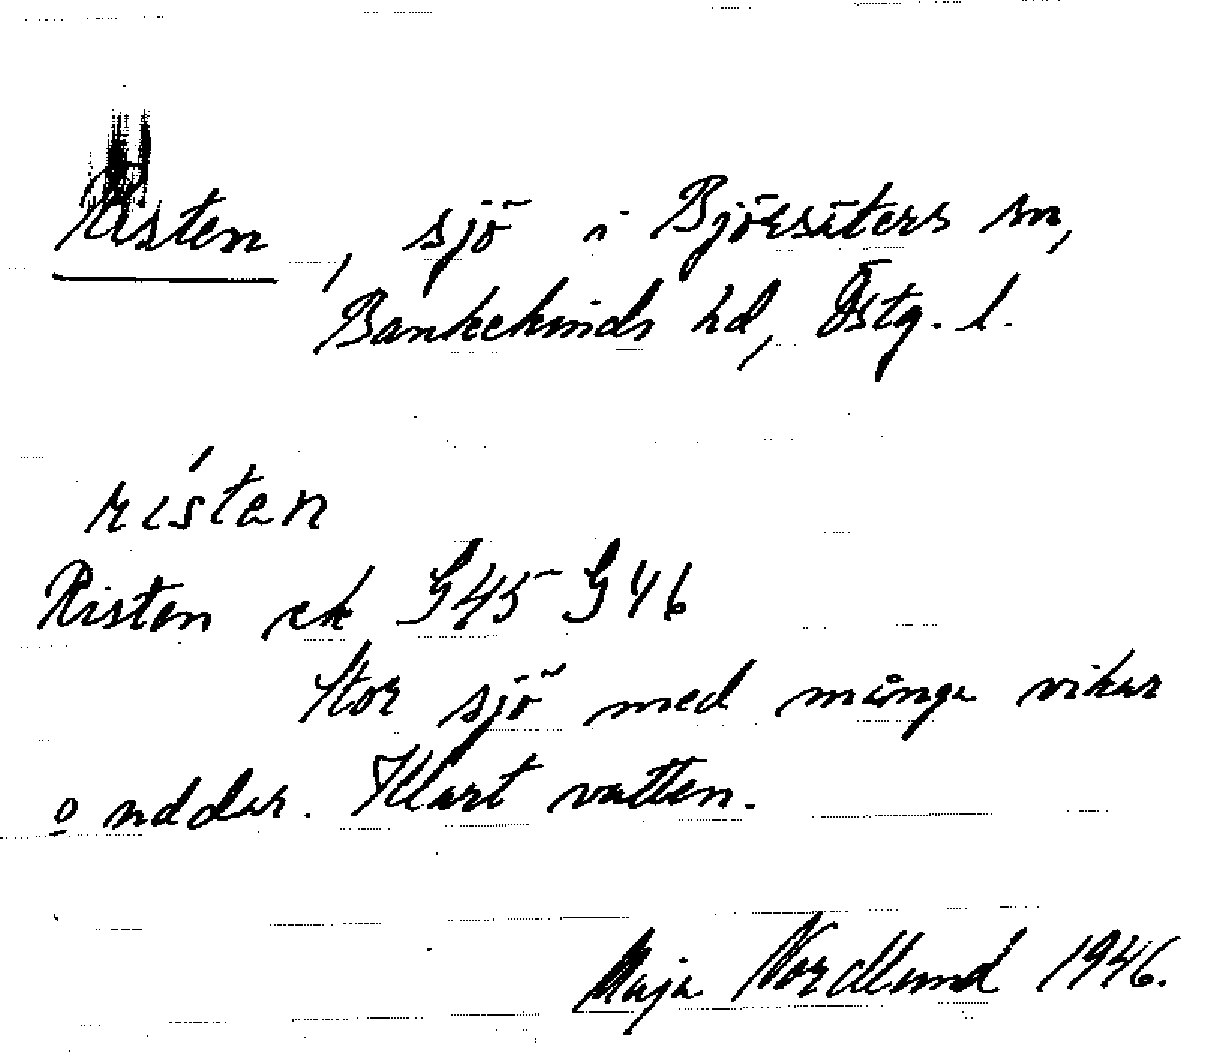 Risten, sjö i Björsäters sn,
Bankekinds hd, Östg. l.
rístən
Risten ek G45 G46
Stor sjö med många vikar
o uddar. Klart vatten.
Maja Nordlund 1946.